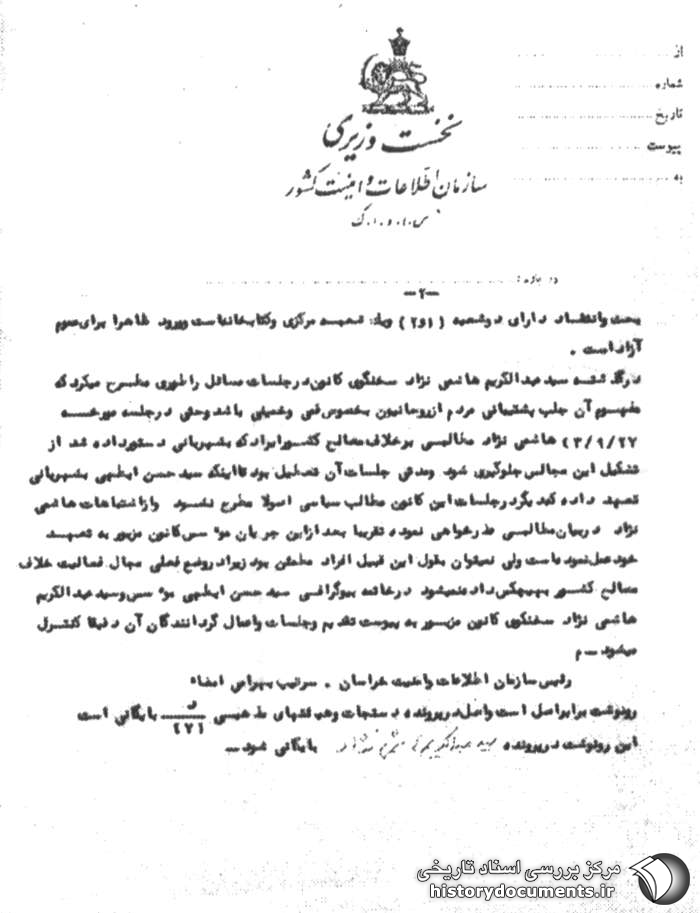 از
شماره
تاریخ
پیوست
به
نخست وزیری
سازمان اطلاعات و امنیت کشور
س.ا.و.ا.ک
درباره :
-۲-
بحث وانتقاد دارای دوشعبه (۱و۲) ویک شعبه مرکزی وکتابخانه است وورود ظاهرا برای عموم
آزاد است .
درگذشته سید عبدالکریم هاشمی نژاد سخنگوی کانون در جلسات مسائل را طوری مطرح میکرد که
مفهوم آن جلب پشتیبانی مردم از روحانیون بخصوص قمی وخمینی باشد وحتی در جلسه مورخه
۴۳/۹/۲۷ هاشمی نژاد مطالبی برخلاف مصالح کشور ایراد که بشهربانی دستور داده شد از
تشکیل این مجالس جلوگیری شود ومدتی جلسات آن تعطیل بود تا اینکه سید حسن ابطحی بشهربانی
تعهد داده که دیگر در جلسات این کانون مطالب سیاسی اصولا مطرح نشود واز اشتباهات هاشمی
نژاد در بیان مطالبی عذرخواهی نموده تقریبا بعد از این جریان موسس کانون مزبور به تعهد
خود عمل نموده است ولی نمیتوان بقول این قبیل افراد مطمئن بود زیرا در وضع فعلی مجال فعالیت خلاف
مصالح کشور بهیچکس داده نمیشود در خاتمه بیوگرافی سید حسن ابطحی موسس وسید عبدالکریم
هاشمی نژاد سخنگوی کانون مزبور به پیوست تقدیم وجلسات واعمال گردانندگان آن دقیقا کنترل
میشود - م
رئیس سازمان اطلاعات وامنیت خراسان . سرتیپ بهرامی امضاء
رونوشت برابر اصل است واصل در پرونده دستجات وهیئتهای مذهبی د/۲۷۱ بایگانی است
این رونوشت در پرونده سید عبدالکریم هاشمی نژاد بایگانی شود -
مرکز بررسی اسناد تاریخی
historydocuments.ir